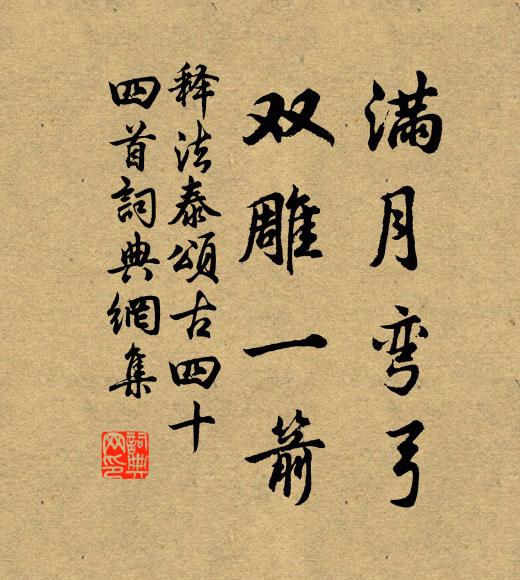 满月弯弓
双雕一箭
释法泰頌古四十
四首詞典網集
詞典网印